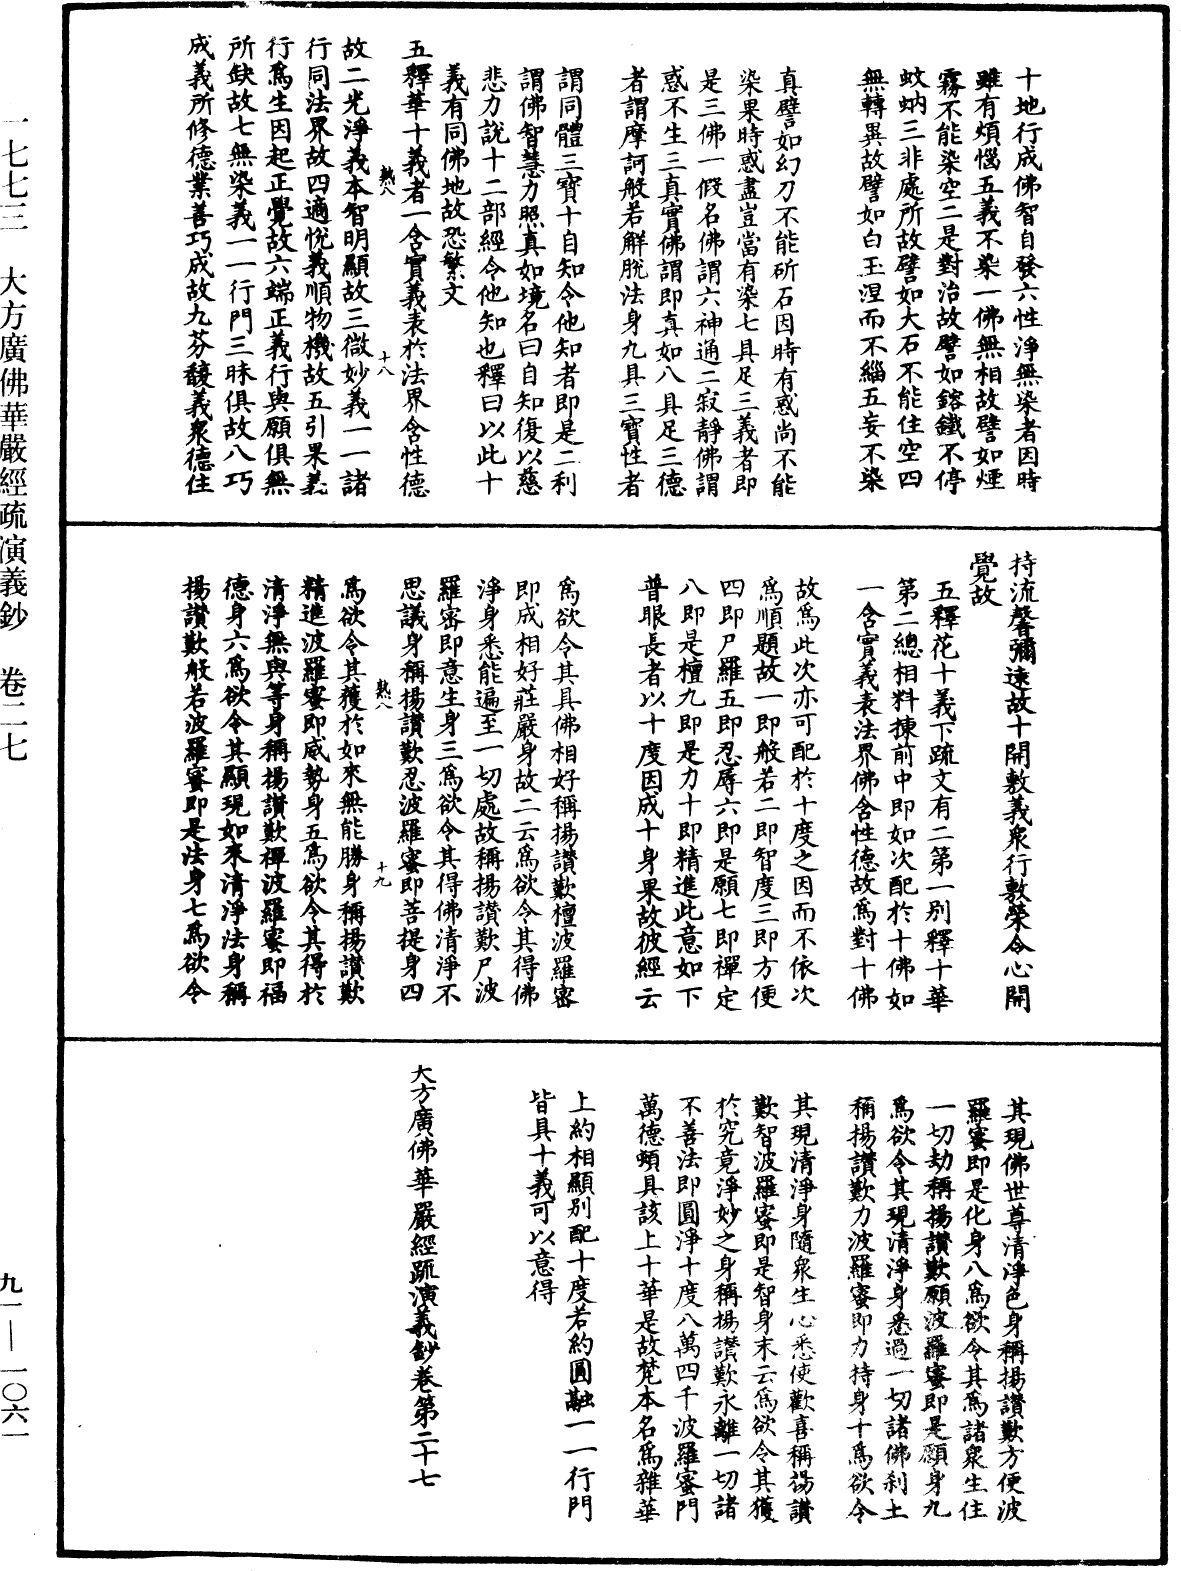 十地行成佛智自發六性淨無染者因時
雖有煩惱五義不染一佛無相故譬如煙
霧不能染空二是對治故譬如鎔鐵不停
蚊蚋三非處所故譬如大石不能住空四
無轉異故譬如白玉涅而不緇五妄不染
真譬如幻刀不能斫石因時有惑尚不能
染果時惑盡豈當有染七具足三義者即
是三佛一假名佛謂六神通二寂靜佛謂
惑不生三真實佛謂即真如八具足三德
者謂摩訶般若解脫法身九具三寶性者
謂同體三寶十自知令他知者即是二利
謂佛智慧力照真如境名曰自知復以慈
悲力說十二部經令他知也釋曰以此十
義有同佛地故恐繁文
五釋華十義者一含實義表於法界含性德
熱八
十八
故二光淨義本智明顯故三微妙義一一諸
行同法界故四適悅義順物機故五引果義
行為生因起正覺故六端正義行與願俱無
所缺故七無染義一一行門三昧俱故八巧
成義所修德業善巧成故九芬馥義衆德住
持流馨彌遠故十開敷義衆行敷榮令心開
覺故
五釋花十義下疏文有二第一別釋十華
第二總相料揀前中即如次配於十佛如
一含實義表法界佛含性德故為對十佛
故為此次亦可配於十度之因而不依次
為順題故一即般若二即智度三即方便
四即尸羅五即忍辱六即是願七即禪定
八即是檀九即是力十即精進此意如下
普眼長者以十度因成十身果故彼經云
為欲令其具佛相好稱揚讚歎檀波羅蜜
即成相好莊嚴身故二云為欲令其得佛
淨身悉能遍至一切處故稱揚讚歎尸波
羅蜜即意生身三為欲令其得佛清淨不
思議身稱揚讚歎忍波羅蜜即菩提身四
熱八
十九
為欲令其獲於如來無能勝身稱揚讚歎
精進波羅蜜即威勢身五為欲令其得於
清淨無與等身稱揚讚歎禪波羅蜜即福
德身六為欲令其顯現如來清淨法身稱
揚讚歎般若波羅蜜即是法身七為欲令
其現佛世尊清淨色身稱揚讚歎方便波
羅蜜即是化身八為欲令其為諸衆生住
一切劫稱揚讚歎願波羅蜜即是願身九
為欲令其現清淨身悉過一切諸佛剎土
稱揚讚歎力波羅蜜即力持身十為欲令
其現清淨身隨衆生心悉使歡喜稱揚讚
歎智波羅蜜即是智身末云為欲令其獲
於究竟淨妙之身稱揚讚歎永離一切諸
不善法即圓淨十度八萬四千波羅蜜門
萬德頓具該上十華是故梵本名為雜華
上約相顯別配十度若約圓融一一行門
皆具十義可以意得
大方廣佛華嚴經䟽演義鈔卷第二十七
一七七三 大方廣佛華嚴經疏演義鈔 卷二七
九一—一〇六一